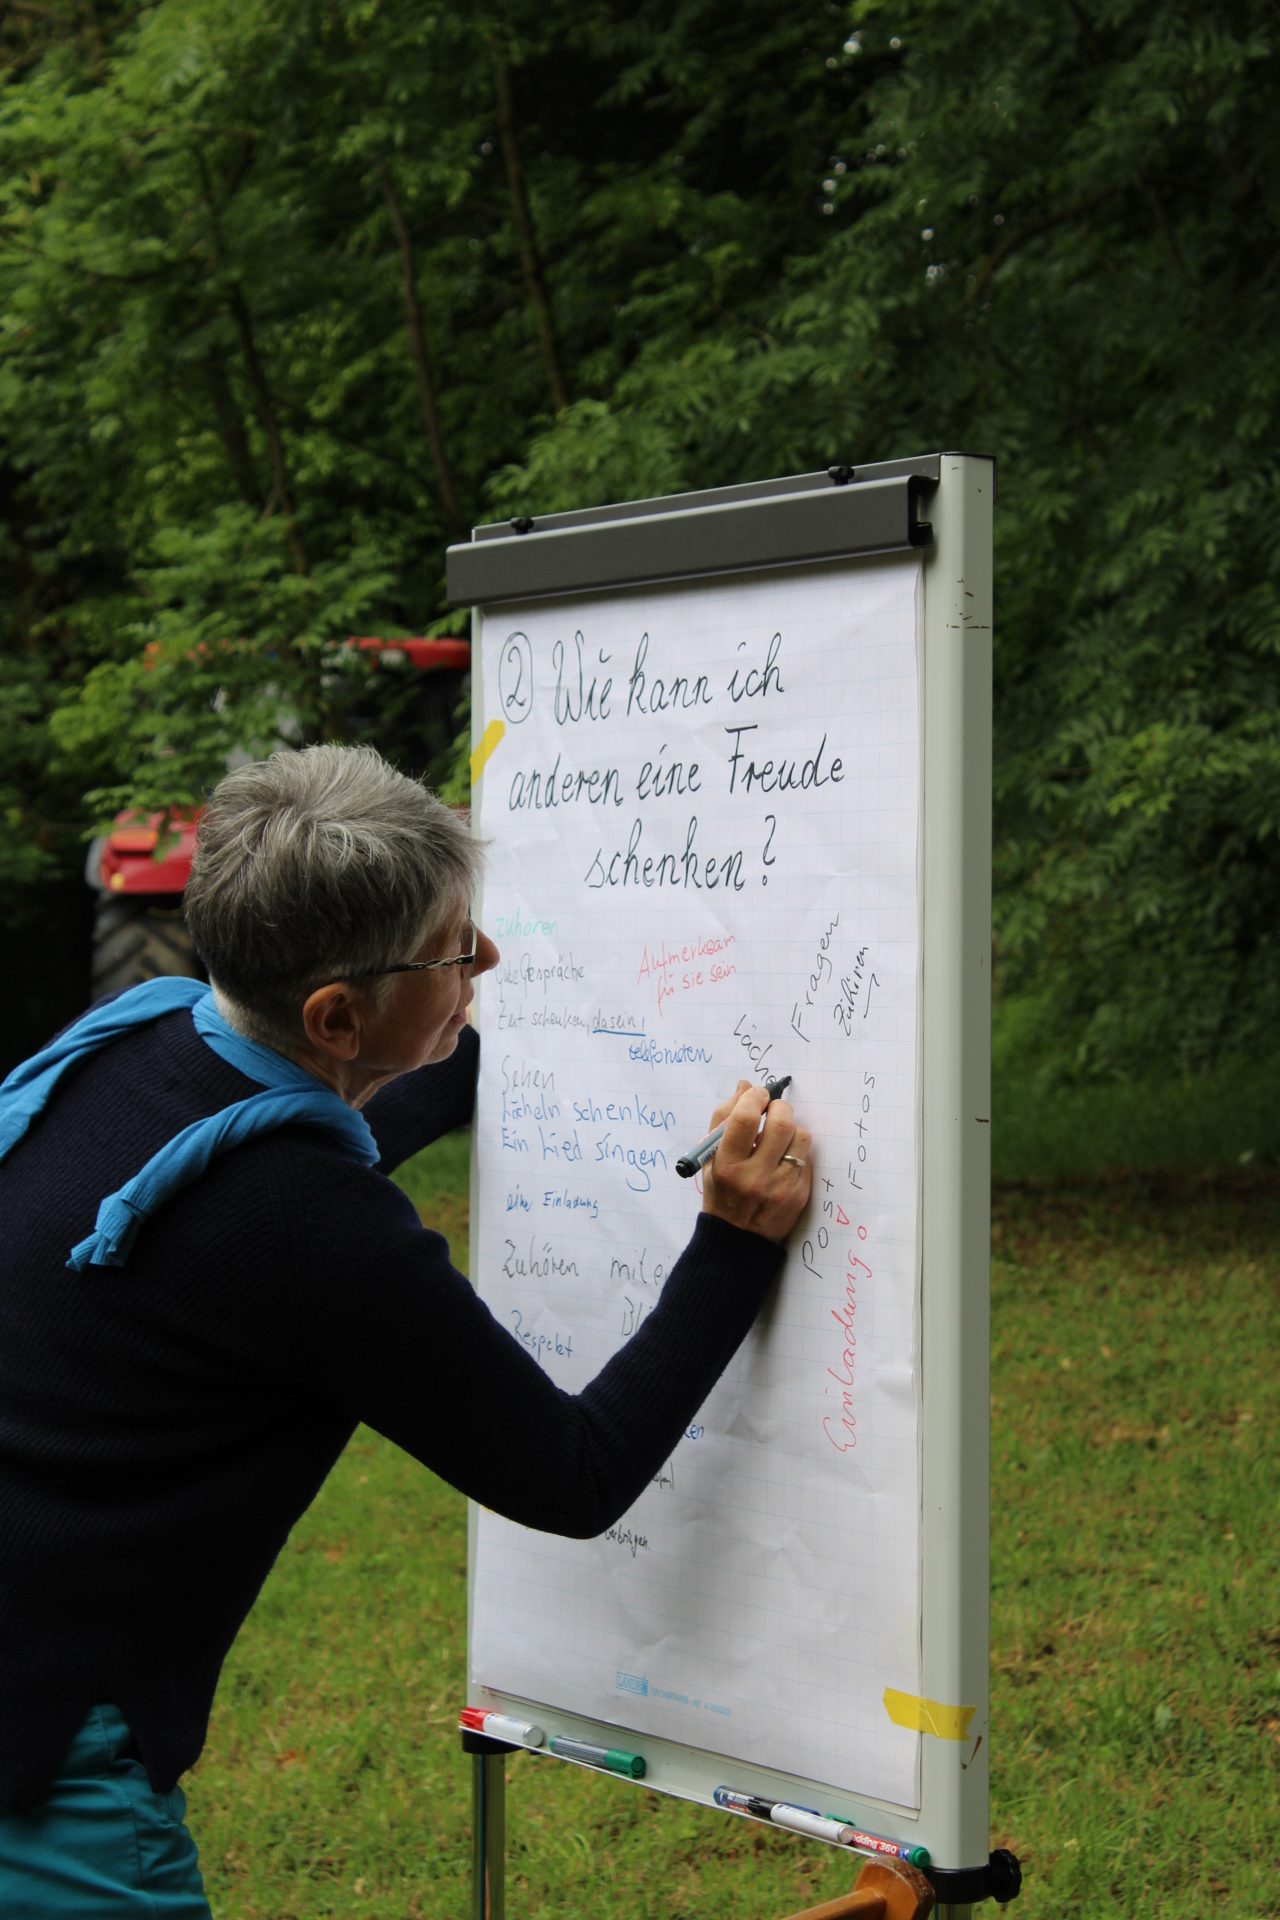 ② Wie kann ich
anderen eine Freude
schenken?
zuhören
Gute Gespräche
Aufmerksam
für sie sein
Zeit schenken, dasein,
telefonieren
Sehen
Lächeln schenken
Ein Lied singen
eine Einladung
Zuhören mit
Respekt
verbringen.
Fragen
Zuhören
Läche
Fotos
Post
Einladung
edding 360